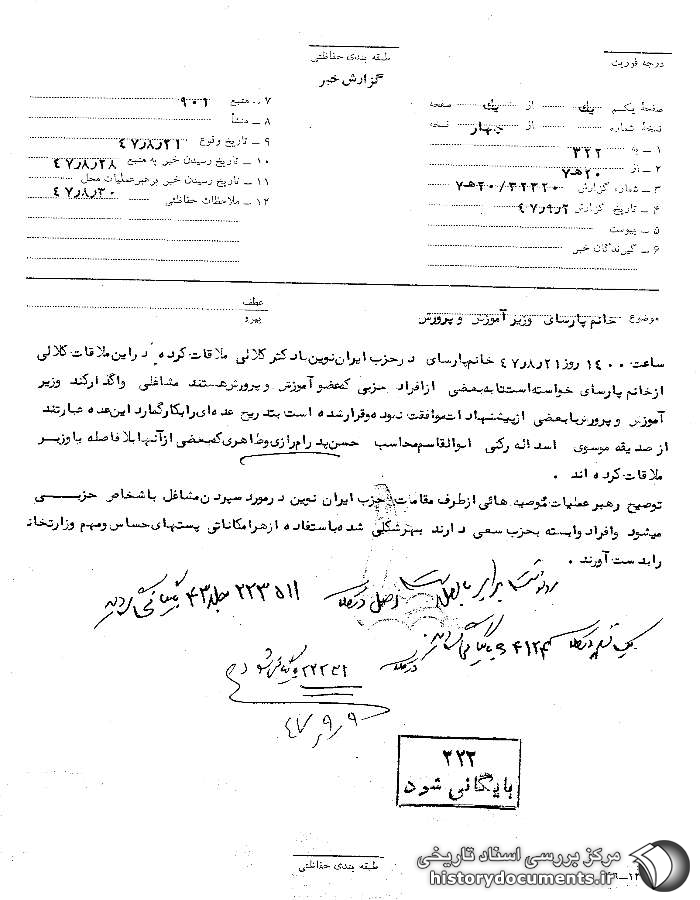 طبقه بندی حفاظتی
گزارش خبر
درجه فوریت
صفحهٔ یکم یک از یک صفحه
نسخهٔ شماره از چهار نسخه
۱ ـ به ۳۲۲
۲ ـ از ۲۰هـ۷
۳ ـ شماره گزارش ۲۰/۳۲۳۲۰هـ۷
۴ ـ تاریخ گزارش ۴۷٫۹٫۲
۵ ـ پیوست
۶ ـ گیرندگان خبر
۷ ـ منبع ۹۰۱
۸ ـ منشأ
۹ ـ تاریخ وقوع ۴۷٫۸٫۲۱
۱۰ ـ تاریخ رسیدن خبر به منبع ۴۷٫۸٫۲۸
۱۱ ـ تاریخ رسیدن خبر برهبرعملیات محل ۴۷٫۸٫۳۰
۱۲ ـ ملاحظات حفاظتی
موضوع خانم پارسای وزیر آموزش و پرورش
عطف
پیرو
ساعت ۱۴۰۰ روز ۴۷٫۸٫۲۱ خانم پارسای در حزب ایران نوین با دکتر کلالی ملاقات کرده در این ملاقات کلالی
از خانم پارسای خواسته است تا به بعضی از افراد حزبی که عضو آموزش و پرورش هستند مشاغلی واگذار کند وزیر
آموزش و پرورش با بعضی از پیشنهادات موافقت نموده و قرار شده است بتدریج عده ای را بکار گمارد این عده عبارتند
از صدیقه موسوی اسداله رکنی ابوالقاسم محاسب حسن پدرام رازی و طاهری که بعضی از آنها بلافاصله با وزیر
ملاقات کرده اند .
توضیح رهبر عملیات توصیه هائی از طرف مقامات حزب ایران نوین در مورد سپردن مشاغل با شخاص حزبی
میشود و افراد وابسته بحزب سعی دارند بهر شکلی شده با استفاده از هر امکاناتی پستهای حساس و مهم وزارتخانه
را بدست آورند .
اصل در کلاسه ۲۲۳۵۱۱ جلد ۴۳ بایگانی گردید
در کلاسه بایگانی شود
۴۷٫۹٫۹
۳۲۲
بایگانی شود
طبقه بندی حفاظتی
مرکز بررسی اسناد تاریخی
historydocuments.ir